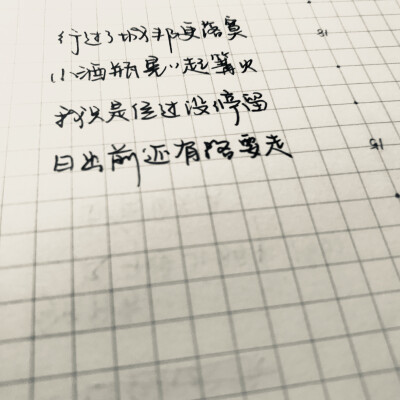 行过了城邦更落寞
小酒瓶晃一晃起篝火
我只是住过没停留
日出前还有路要走